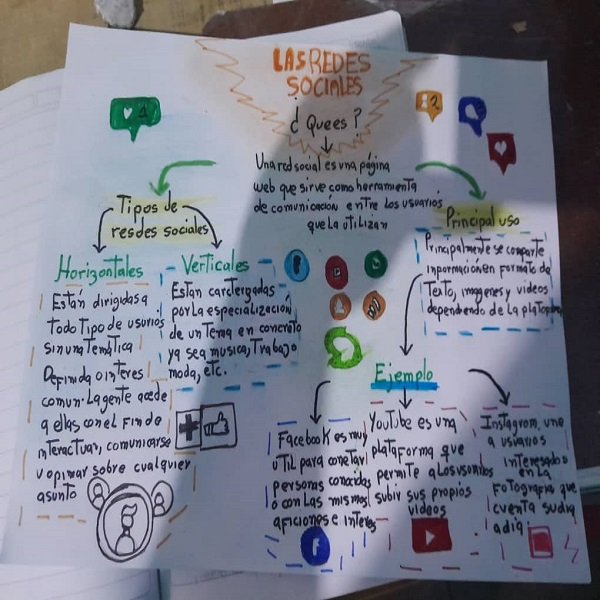 LAS REDES
SOCIALES
¿Quees?
Una red social es una pagina
web que sirve como herramienta
de comunicación entre los usuarios
que la utilizan
1
2
Tipos de
resdes sociales
Horizontales
Están dirigidas a
todo tipo de usurios
sin una temática
Definida o interes
comun. La gente accede
a ellas con el fin do
interactuar, comunicarse
u opinar sobre cualquier
asunto
Verticales
Estan carctergadas
por la especialización
de un tema en concreto
ya sea musica, trabajo
moda, etc.
Principal uso
Principalmente se comparte
información en formato de
Texto, imagenes y videos
dependendo de la
Ejemplo
Facebook es muy
util para conetar
personas conocidas
o con las mismas
aficiones e interes
f
YouTube es una
plataforma que
permite a los
subir sus propios
videos
Instagram, une
a usuarios
interesados
en la
Fotografía que
cuenta su dia
a dia